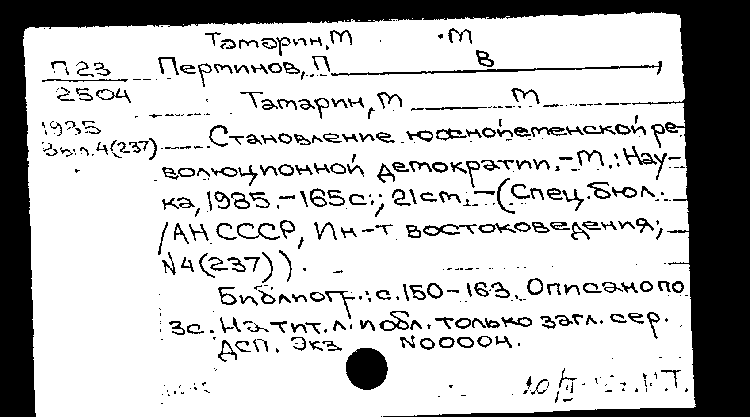 Тамарин, М М
П23 Перминов, П В ,
2504 Тамарин, М М
1985 Становление южнойеменской ре-
Вып.4(237) волюционной демократии. – М.: Нау-
ка, 1985. – 165с.; 21см. – (Спец. бюл.
/АН СССР, Ин-т востоковедения;
N4(237)).
Библиогр.: с.150-163. Описано по
3с. На тит. л. и обл. только загл. сер.
ДСП. Экз N00004.